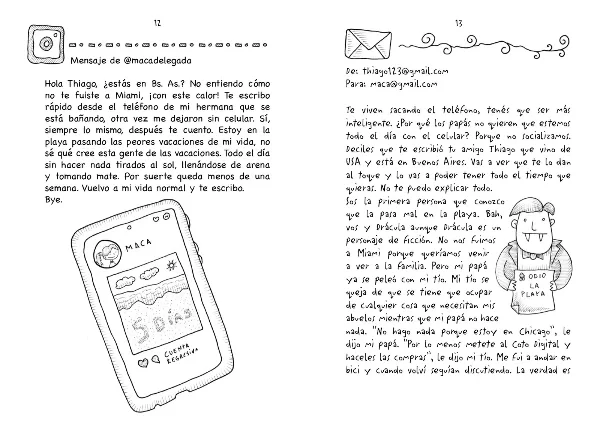 12
Mensaje de @macadelegada
Hola Thiago, ¿estás en Bs. As.? No entiendo cómo
no te fuiste a Miami, ¡con este calor! Te escribo
rápido desde el teléfono de mi hermana que se
está bañando, otra vez me dejaron sin celular. Sí,
siempre lo mismo, después te cuento. Estoy en la
playa pasando las peores vacaciones de mi vida, no
sé qué cree esta gente de las vacaciones. Todo el día
sin hacer nada tirados al sol, llenándose de arena
y tomando mate. Por suerte queda menos de una
semana. Vuelvo a mi vida normal y te escribo.
Bye.
MACA
5 DÍAS
CUENTA
REGRESIVA
13
De: thiago123@gmail.com
Para: maca@gmail.com
Te viven sacando el teléfono, tenés que ser más
inteligente. ¿Por qué los papás no quieren que estemos
todo el día con el celular? Porque no socializamos.
Deciles que te escribió tu amigo Thiago que vino de
USA y está en Buenos Aires. Vas a ver que te lo dan
al toque y lo vas a poder tener todo el tiempo que
quieras. No te puedo explicar todo.
Sos la primera persona que conozco
que la pasa mal en la playa. Bah,
vos y Drácula aunque Drácula es un
personaje de ficción. No nos fuimos
a Miami porque queríamos venir
a ver a la familia. Pero mi papá
ya se peleó con mi tío. Mi tío se
queja de que se tiene que ocupar
de cualquier cosa que necesitan mis
abuelos mientras que mi papá no hace
nada. "No hago nada porque estoy en Chicago", le
dijo mi papá. "Por lo menos metete al Coto Digital y
haceles las compras", le dijo mi tío. Me fui a andar en
bici y cuando volví seguían discutiendo. La verdad es
ODIO
LA
PLAYA